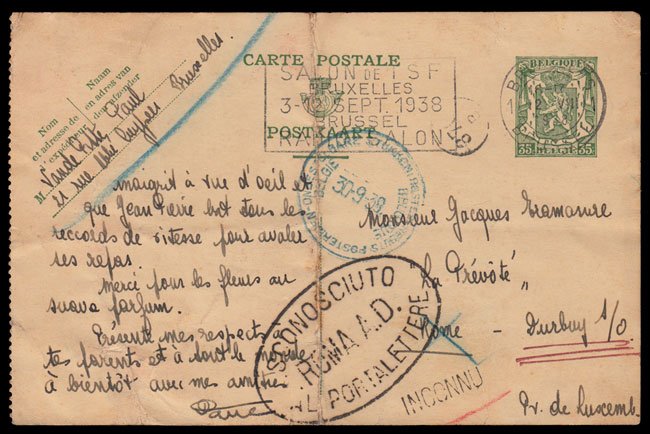 Nom
et adresse de
l'expéditeur
Naam
en adres van
den afzender
M. Vande Paul
21 rue Bruxelles.
CARTE POSTALE
POSTKAART
SALON DE TSF
BRUXELLES
3-12 SEPT. 1938
BRUSSEL
RADIOSALON
BELGIE
35 35
maigrit à vue d'oeil et
que Jean Pierre bat tous les
reccords de vitesse pour avaler
ses repas.
Merci pour les fleurs au
suave parfum.
Présente mes respects à
tes parents et à tout le monde
à bientôt avec mes amitiés
30-9-38
Monsieur Jacques Tramasure
"La Prévôté"
Rome - Durbuy s/O.
Pr. de Luxemb.
SCONOSCIUTO
ROMA A.D.
AL PORTALETTERE
INCONNU